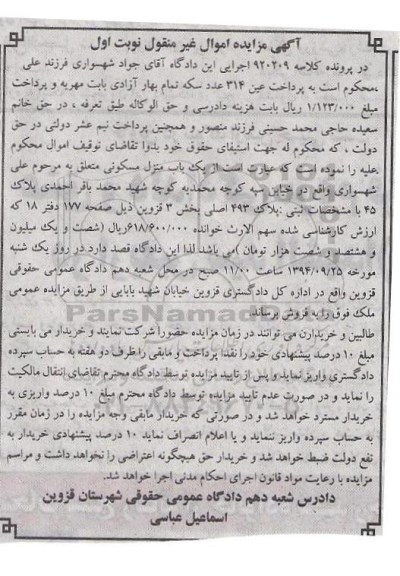 آگهی مزایده اموال غیر منقول نوبت اول
در پرونده کلاسه ۹۲۰۲۰۹ اجرایی این دادگاه آقای جواد شهسواری فرزند علی
محکوم است به پرداخت عین ۳۱۴ عدد سکه تمام بهار آزادی بابت مهریه و پرداخت
مبلغ ۱/۱۲۳/۰۰۰ ریال بابت هزینه دادرسی و حق الوکاله طبق تعرفه ، در حق خانم
سعیده حاجی محمد حسینی فرزند منصور و همچنین پرداخت نیم عشر دولتی در حق
دولت ، که محکوم له جهت استیفای حقوق خود بدوا تقاضای توقیف اموال محکوم
علیه را نموده است که عبارت است از یک باب منزل مسکونی متعلق به مرحوم علی
شهسواری واقع در خیابان سپه کوچه محمدیه کوچه شهید محمد باقر احمدی پلاک
۴۵ با مشخصات ثبتی :پلاک ۴۹۳ اصلی بخش ۳ قزوین ذیل صفحه ۱۷۷ دفتر ۱۸ که
ارزش کارشناسی شده سهم الارث خوانده ۶۱۸/۶۰۰/۰۰۰ریال (شصت و یک میلیون
و هشتصد و شصت هزار تومان )می باشد لذا این دادگاه قصد دارد در روز یک شنبه
مورخه ۱۳۹۴/۰۹/۲۵ ساعت ۱۱/۰۰ صبح در محل شعبه دهم دادگاه عمومی حقوقی
قزوین واقع در اداره کل دادگستری قزوین خیابان شهید بابایی از طریق مزایده عمومی
ملک فوق را به فروش برساند.
طالبین و خریداران می توانند در زمان مزایده حضورا شرکت نمایند و خریدار می بایستی
مبلغ ۱۰ درصد پیشنهادی خود را نقدا پرداخت و مابقی را ظرف دو هفته به حساب سپرده
دادگستری واریز نماید و پس از تایید مزایده توسط دادگاه محترم تقاضای انتقال مالکیت
را نماید و در صورت عدم تایید مزایده توسط دادگاه محترم مبلغ ۱۰ درصد واریزی به
خریدار مسترد خواهد شد و در صورتی که خریدار مابقی وجه مزایده را در زمان مقرر
به حساب سپرده واریز ننماید و یا اعلام انصراف نماید ۱۰ درصد پیشنهادی خریدار به
نفع دولت ضبط خواهد شد و خریدار حق هیچگونه اعتراضی را نخواهد داشت و مراسم
مزایده با رعایت مواد قانون اجرای احکام مدنی اجرا خواهد شد.
دادرس شعبه دهم دادگاه عمومی حقوقی شهرستان قزوین
اسماعیل عباسی
ParsNamad